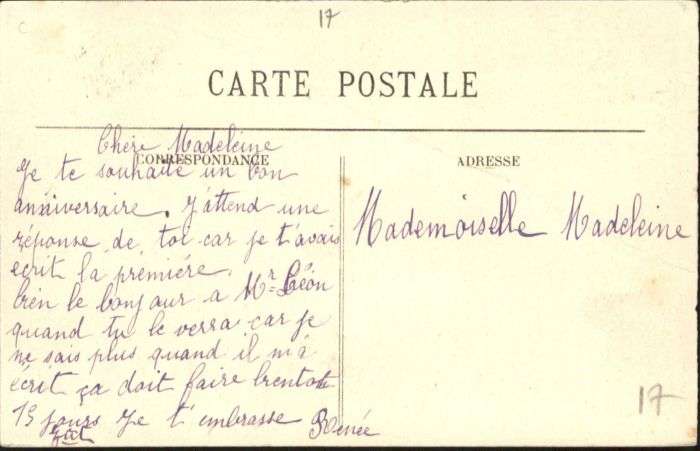 17
CARTE POSTALE
CORRESPONDANCE
ADRESSE
Chère Madeleine
Je te souhaite un bon
anniversaire. J'attend une
réponse de toi car je t'avais
écrit la première.
bien le bonjour a Mr Léon
quand tu le verra car je
ne sais plus quand il m'a
écrit ça doit faire bientot
15 jours Je t'embrasse Renée
Mademoiselle Madeleine
17